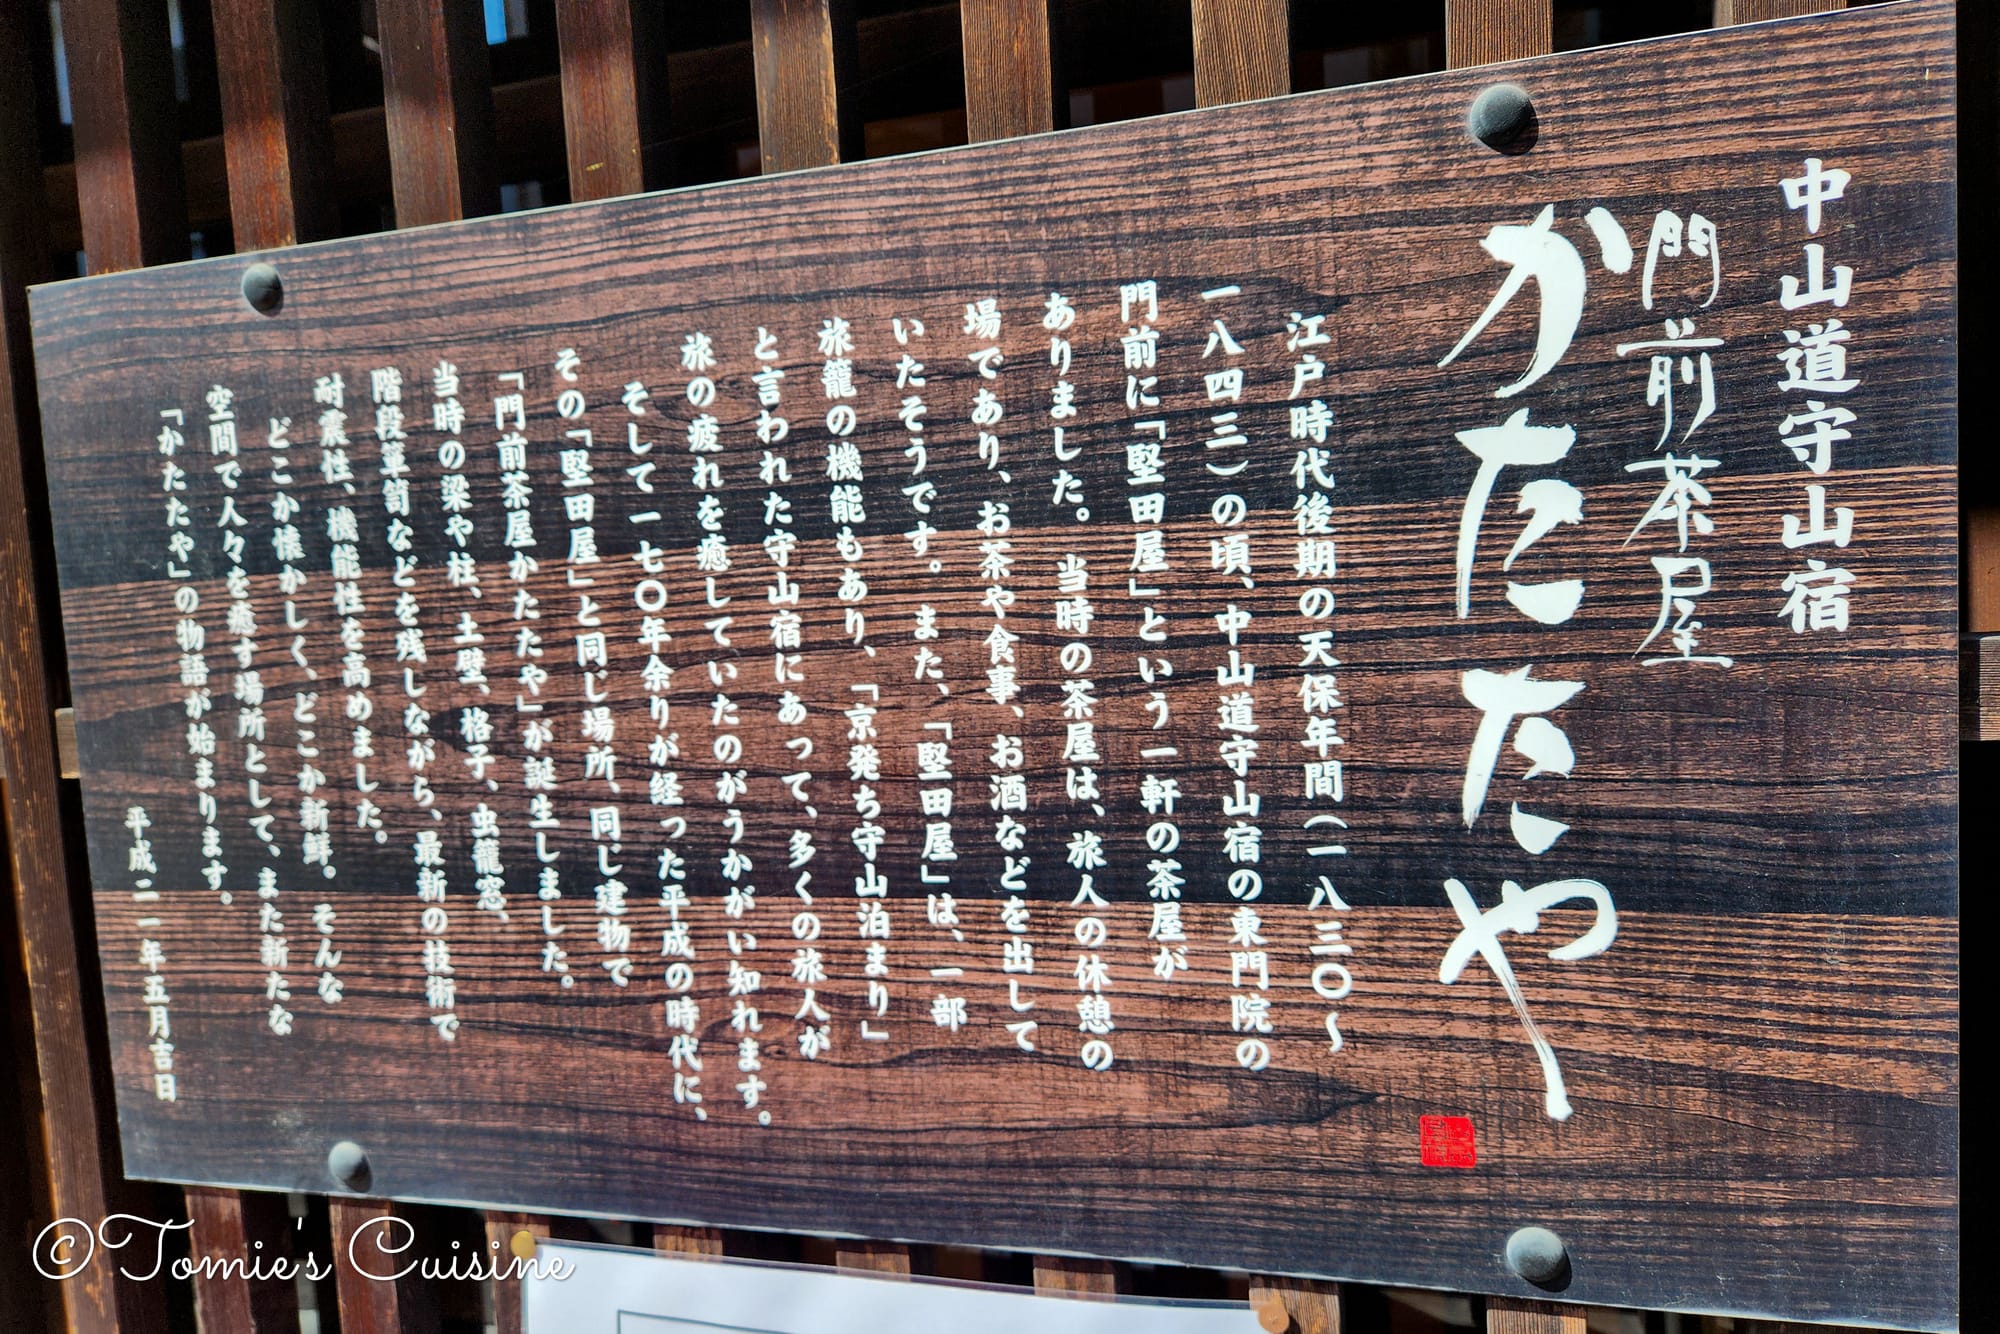 中山道守山宿
門前茶屋
かたたや
江戸時代後期の天保年間(一八三〇〜
一八四三)の頃、中山道守山宿の東門院の
門前に「堅田屋」という一軒の茶屋が
ありました。当時の茶屋は、旅人の休憩の
場であり、お茶や食事、お酒などを出して
いたそうです。また、「堅田屋」は、一部
旅籠の機能もあり、「京発ち守山泊まり」
と言われた守山宿にあって、多くの旅人が
旅の疲れを癒していたのがうかがい知れます。
そして一七〇年余りが経った平成の時代に、
その「堅田屋」と同じ場所、同じ建物で
「門前茶屋かたたや」が誕生しました。
当時の梁や柱、土壁、格子、虫籠窓、
階段箪笥などを残しながら、最新の技術で
耐震性、機能性を高めました。
どこか懐かしく、どこか新鮮。そんな
空間で人々を癒す場所として、また新たな
「かたたや」の物語が始まります。
平成二一年五月吉日
©Tomie's Cuisine